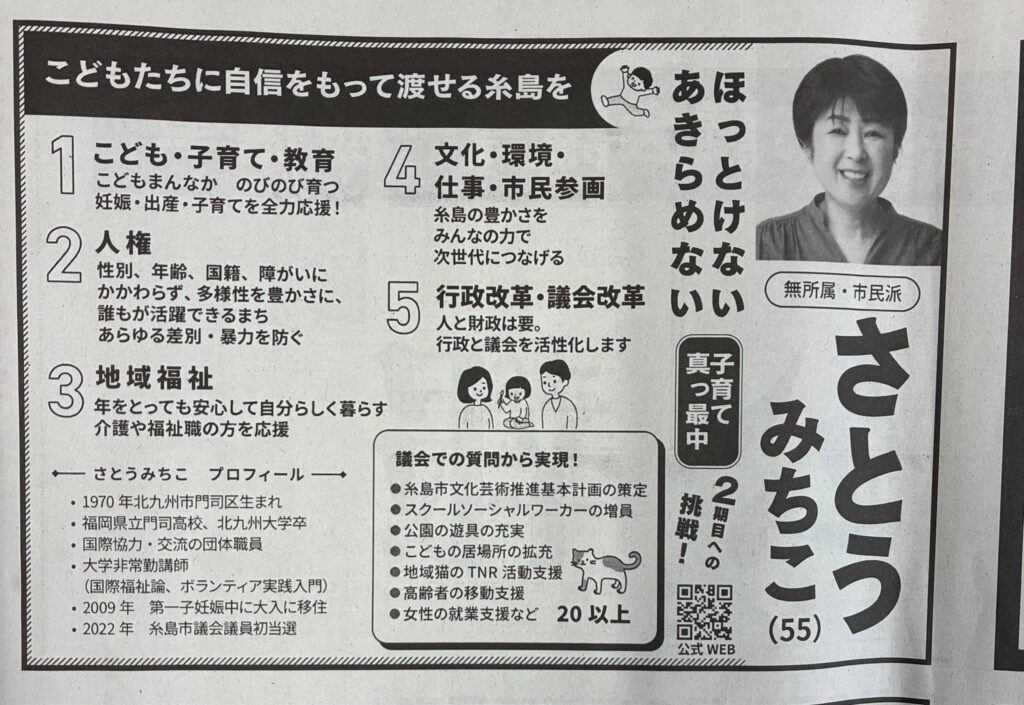 こどもたちに自信をもって渡せる糸島を
ほっとけない
あきらめない
無所属・市民派
さとう
みちこ
(55)
子育て
真っ最中
2期目への
挑戦！
公式 WEB
1 こども・子育て・教育
こどもまんなか　のびのび育つ
妊娠・出産・子育てを全力応援！
2 人権
性別、年齢、国籍、障がいに
かかわらず、多様性を豊かさに、
誰もが活躍できるまち
あらゆる差別・暴力を防ぐ
3 地域福祉
年をとっても安心して自分らしく暮らす
介護や福祉職の方を応援
4 文化・環境・
仕事・市民参画
糸島の豊かさを
みんなの力で
次世代につなげる
5 行政改革・議会改革
人と財政は要。
行政と議会を活性化します
さとうみちこ　プロフィール
・1970 年北九州市門司区生まれ
・福岡県立門司高校、北九州大学卒
・国際協力・交流の団体職員
・大学非常勤講師
（国際福祉論、ボランティア実践入門）
・2009 年　第一子妊娠中に大入に移住
・2022 年　糸島市議会議員初当選
議会での質問から実現！
●糸島市文化芸術推進基本計画の策定
●スクールソーシャルワーカーの増員
●公園の遊具の充実
●こどもの居場所の拡充
●地域猫の TNR 活動支援
●高齢者の移動支援
●女性の就業支援など　20 以上